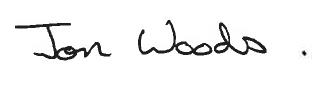 Jon Woods.